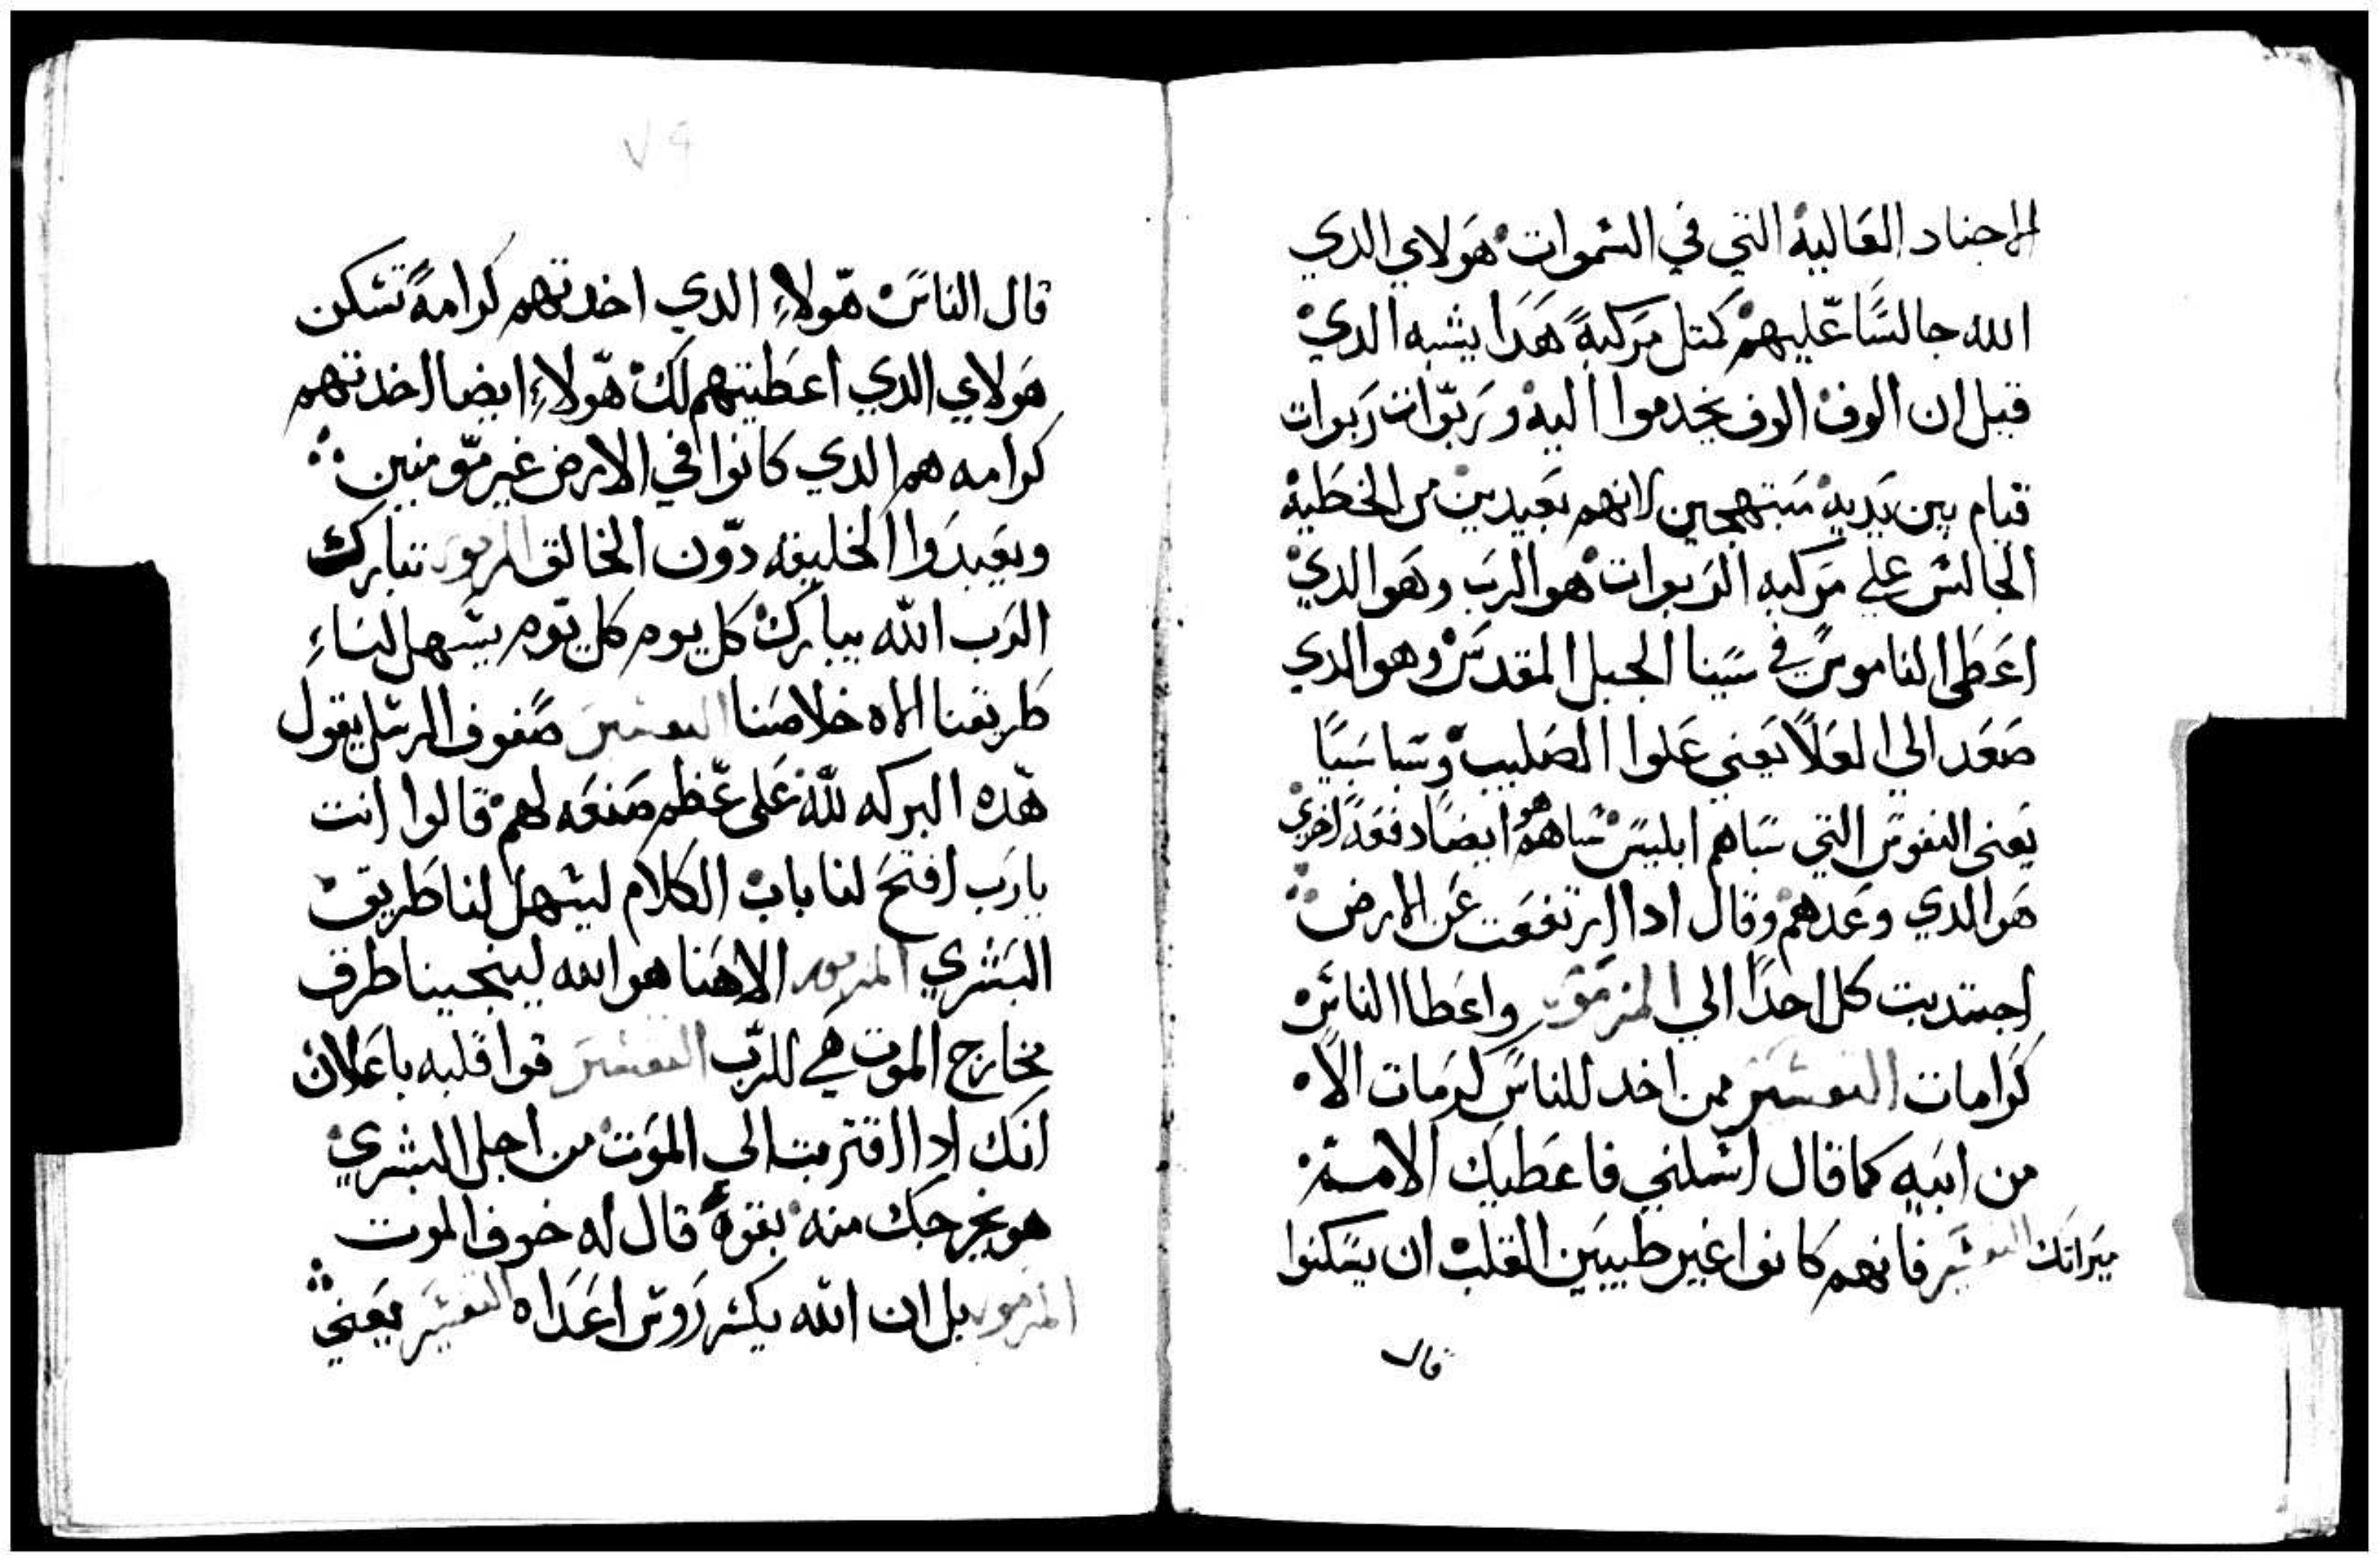 الاجناد العاليه التي في السموات هولاي الدي
الله جالسًا عليهم كمتل مركبة هدا يشبه الدي
قيل ان الوف الوف يخدموا اليه وربوات ربوات
قيام بين يديه مبتهجين لانهم بعيدين من الخطية
الجالس علي مركبه الربوات هو الرب وهو الدي
اعطي الناموس في سينا الجبل المقدس وهو الدي
صعد الي العلا يعني علوا الصليب وسبا سبيًا
يعني النفوس التي سباهم ابليس سباهم هو ايضا دفعة اخري
هو الدي وعدهم وقال ادا ارتفعت عن الارض
اجتديت كل احدًا الي المزمور واعطا الناس
كرامات التفسير من اخد للناس كرمات الاه
من ابيه كما قال اسلني فاعطيك الامم
ميراتك التفسير فانهم كانوا غير طيبين القلب ان يسكنوا
قال
٧٩
قال الناس هولاء الدي اخدتهم كرامة تسكن
هولاي الدي اعطيتهم لك هولاء ايضا اخدتهم
كرامه هم الدي كانوا في الارض غير مومنين
ويعبدوا الخليقه دون الخالق المزمور تبارك
الرب الله يبارك كل يوم كل يوم يسهل لنا
طريقنا الاه خلاصنا التفسير صفوف الرسل يقول
هده البركه لله علي عظم صنعه لهم قالوا انت
يارب افتح لنا باب الكلام ليسهل لنا طريق
البشري المزمور الاهنا هو الله لينجينا طرف
مخارج الموت هي للرب التفسير قوا قلبه باعلان
انك ادا اقتربت الي الموت من اجل البشري
هو يخرجك منه بقوة قال له خوف الموت
المزمور بل ان الله يكسر روس اعداه التفسير يعني